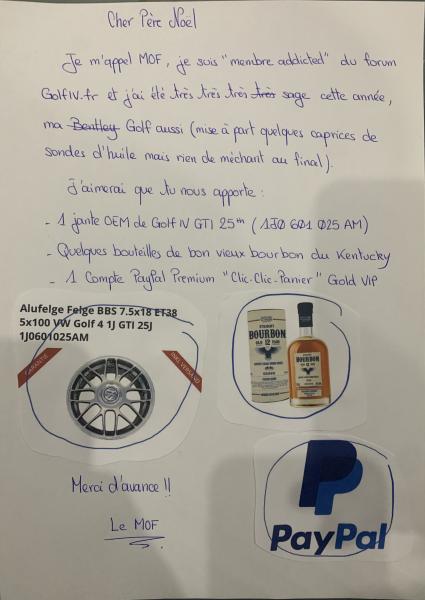 Cher Père Noël
Je m'appel MOF, je suis "membre addicted" du forum
GolfIV.fr et j'ai été très très très très sage cette année,
ma Bentley Golf aussi (mise à part quelques caprices de
sondes d'huile mais rien de méchant au final).
J'aimerai que tu nous apporte :
- 1 jante OEM de Golf IV GTI 25th (1J0 601 025 AM)
- Quelques bouteilles de bon vieux bourbon du Kentucky
- 1 Compte PayPal Premium "Clic-Clic-Panier" Gold VIP
Alufelge Felge BBS 7.5x18 ET38
5x100 VW Golf 4 1J GTI 25J
1J0601025AM
GARANTIE
INKL. VERSAND
STRAIGHT
BOURBON
OLD 12 YEAR
STRAIGHT
BOURBON
OLD 12 YEAR
PayPal
Merci d'avance !!
Le MOF